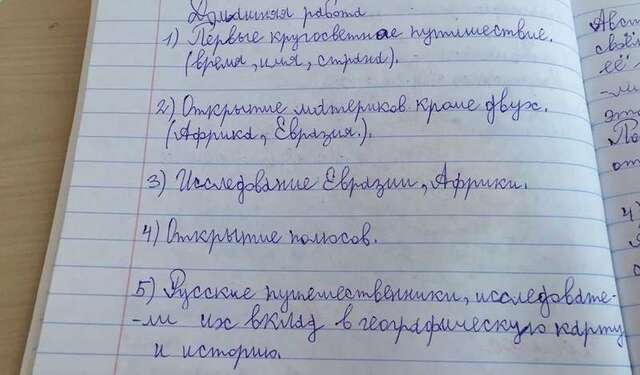 Домашняя работа
1) Первые кругосветное путишествие.
(время, имя, страна).
2) Открытие материков кроме двух.
(Африка, Евразия.).
3) Исследование Евразии, Африки.
4) Открытие полюсов.
5) Русские путешественники, исследовате-
-ли их вклад в географическую карту
и историю.
Авст
свой
её
-ли
это
По
от
4)